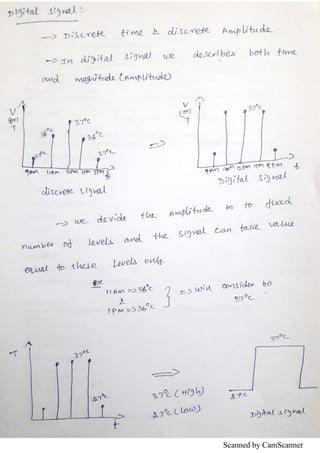 Digital Signal:
→ Discrete time & discrete Amplitude
→ In digital signal we describes both time
and magnitude (Amplitude)
V
(or)
T
27°C
36°C
37°C
36°C
27°C
9AM 11AM 12PM 1PM 5PM t
discrete signal
⇒
V
(or)
T
37°C
9AM 11AM 12PM 1PM 5PM t
Digital signal
→ we devide the Amplitude in to fixed
number of levels and the signal can take value
equal to these levels only.
ex
11AM => 36°C
&
1PM => 36°C
=> will consider to
37°C
T
37°C
27°C
t
⇒
37°C (High)
27°C (low)
37°C
27°C
Digital signal
Scanned by CamScanner